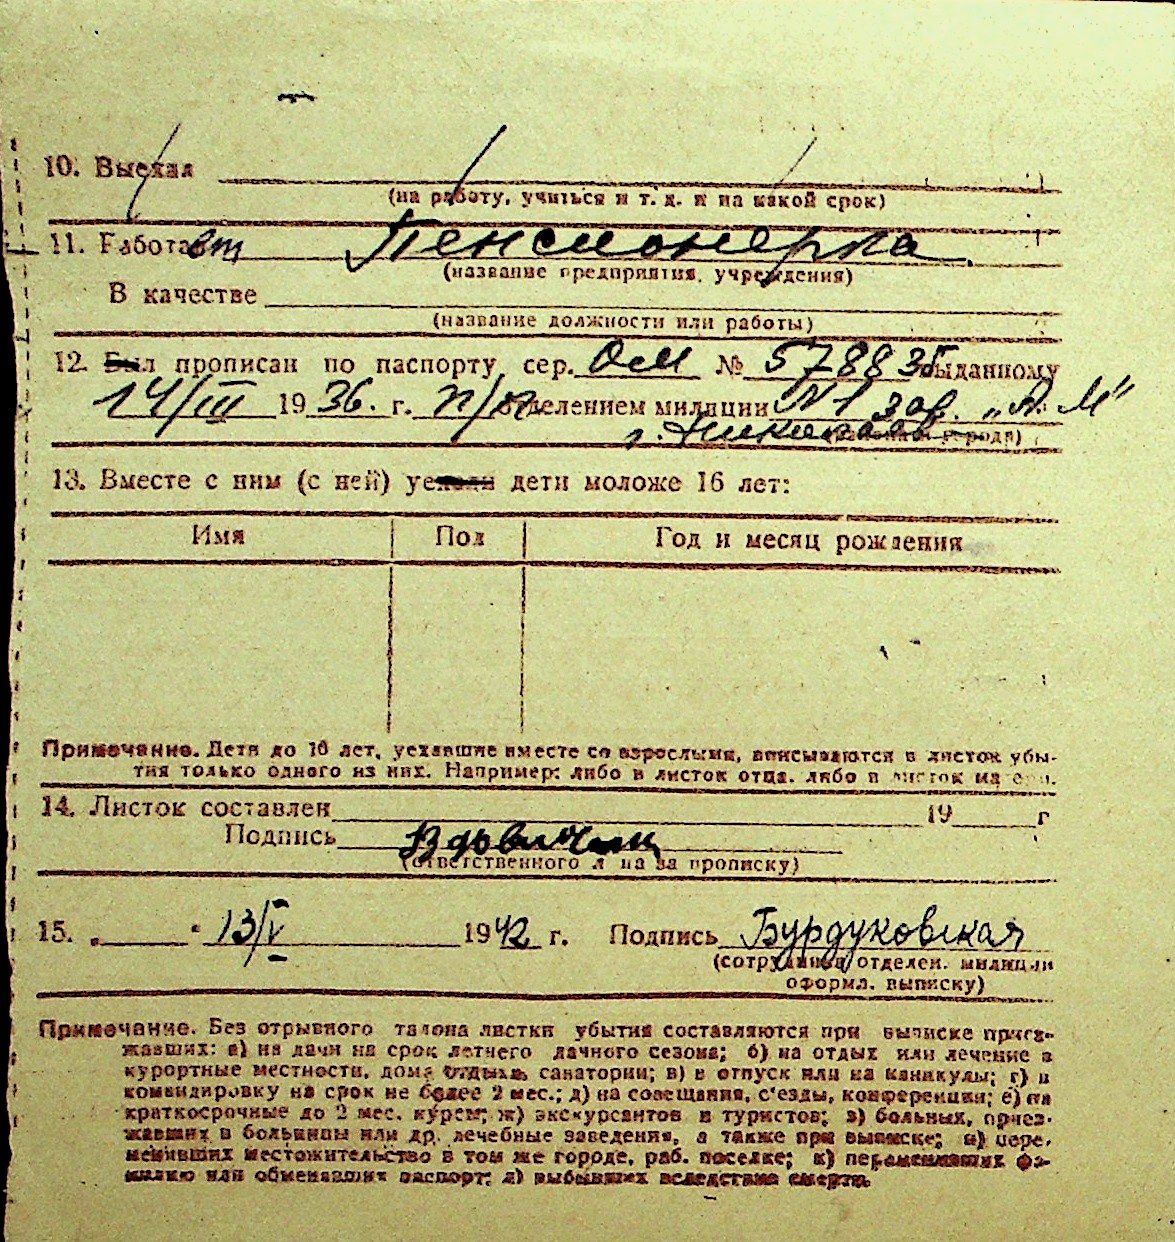 10. Выехал
(на работу, учиться и т. д. и на какой срок)
11. Работает Пенсионерка.
(название предприятия, учреждения)
В качестве
(название должности или работы)
12. Был прописан по паспорту сер. ОМ № 578835 выданному
14/III 1936. г. п/п отделением милиции N1 зав. „А. М"
г. Николаев города)
13. Вместе с ним (с ней) уехали дети моложе 16 лет:
Имя Пол Год и месяц рождения
Примечание. Дети до 16 лет, уехавшие вместе со взрослыми, вписываются в листок убы-
тия только одного из них. Например: либо в листок отца, либо в листок матери.
14. Листок составлен 19 г
Подпись
(ответственного лица за прописку)
15. „ " 13/V 1942 г. Подпись Бурдуковская
(сотрудника отделен. милиции
оформл. выписку)
Примечание. Без отрывного талона листки убытия составляются при выписке приез-
жавших: а) на дачи на срок летнего дачного сезона; б) на отдых или лечение в
курортные местности, дома отдыха, санатории; в) в отпуск или на каникулы; г) в
командировку на срок не более 2 мес.; д) на совещания, с'езды, конференции; е) на
краткосрочные до 2 мес. курсы; ж) экскурсантов и туристов; з) больных, приез-
жавших в больницы или др. лечебные заведения, а также при выписке; и) пере-
менивших местожительство в том же городе, раб. поселке; к) переменивших фа-
милию или обменявших паспорт; л) выбывших вследствие смерти.